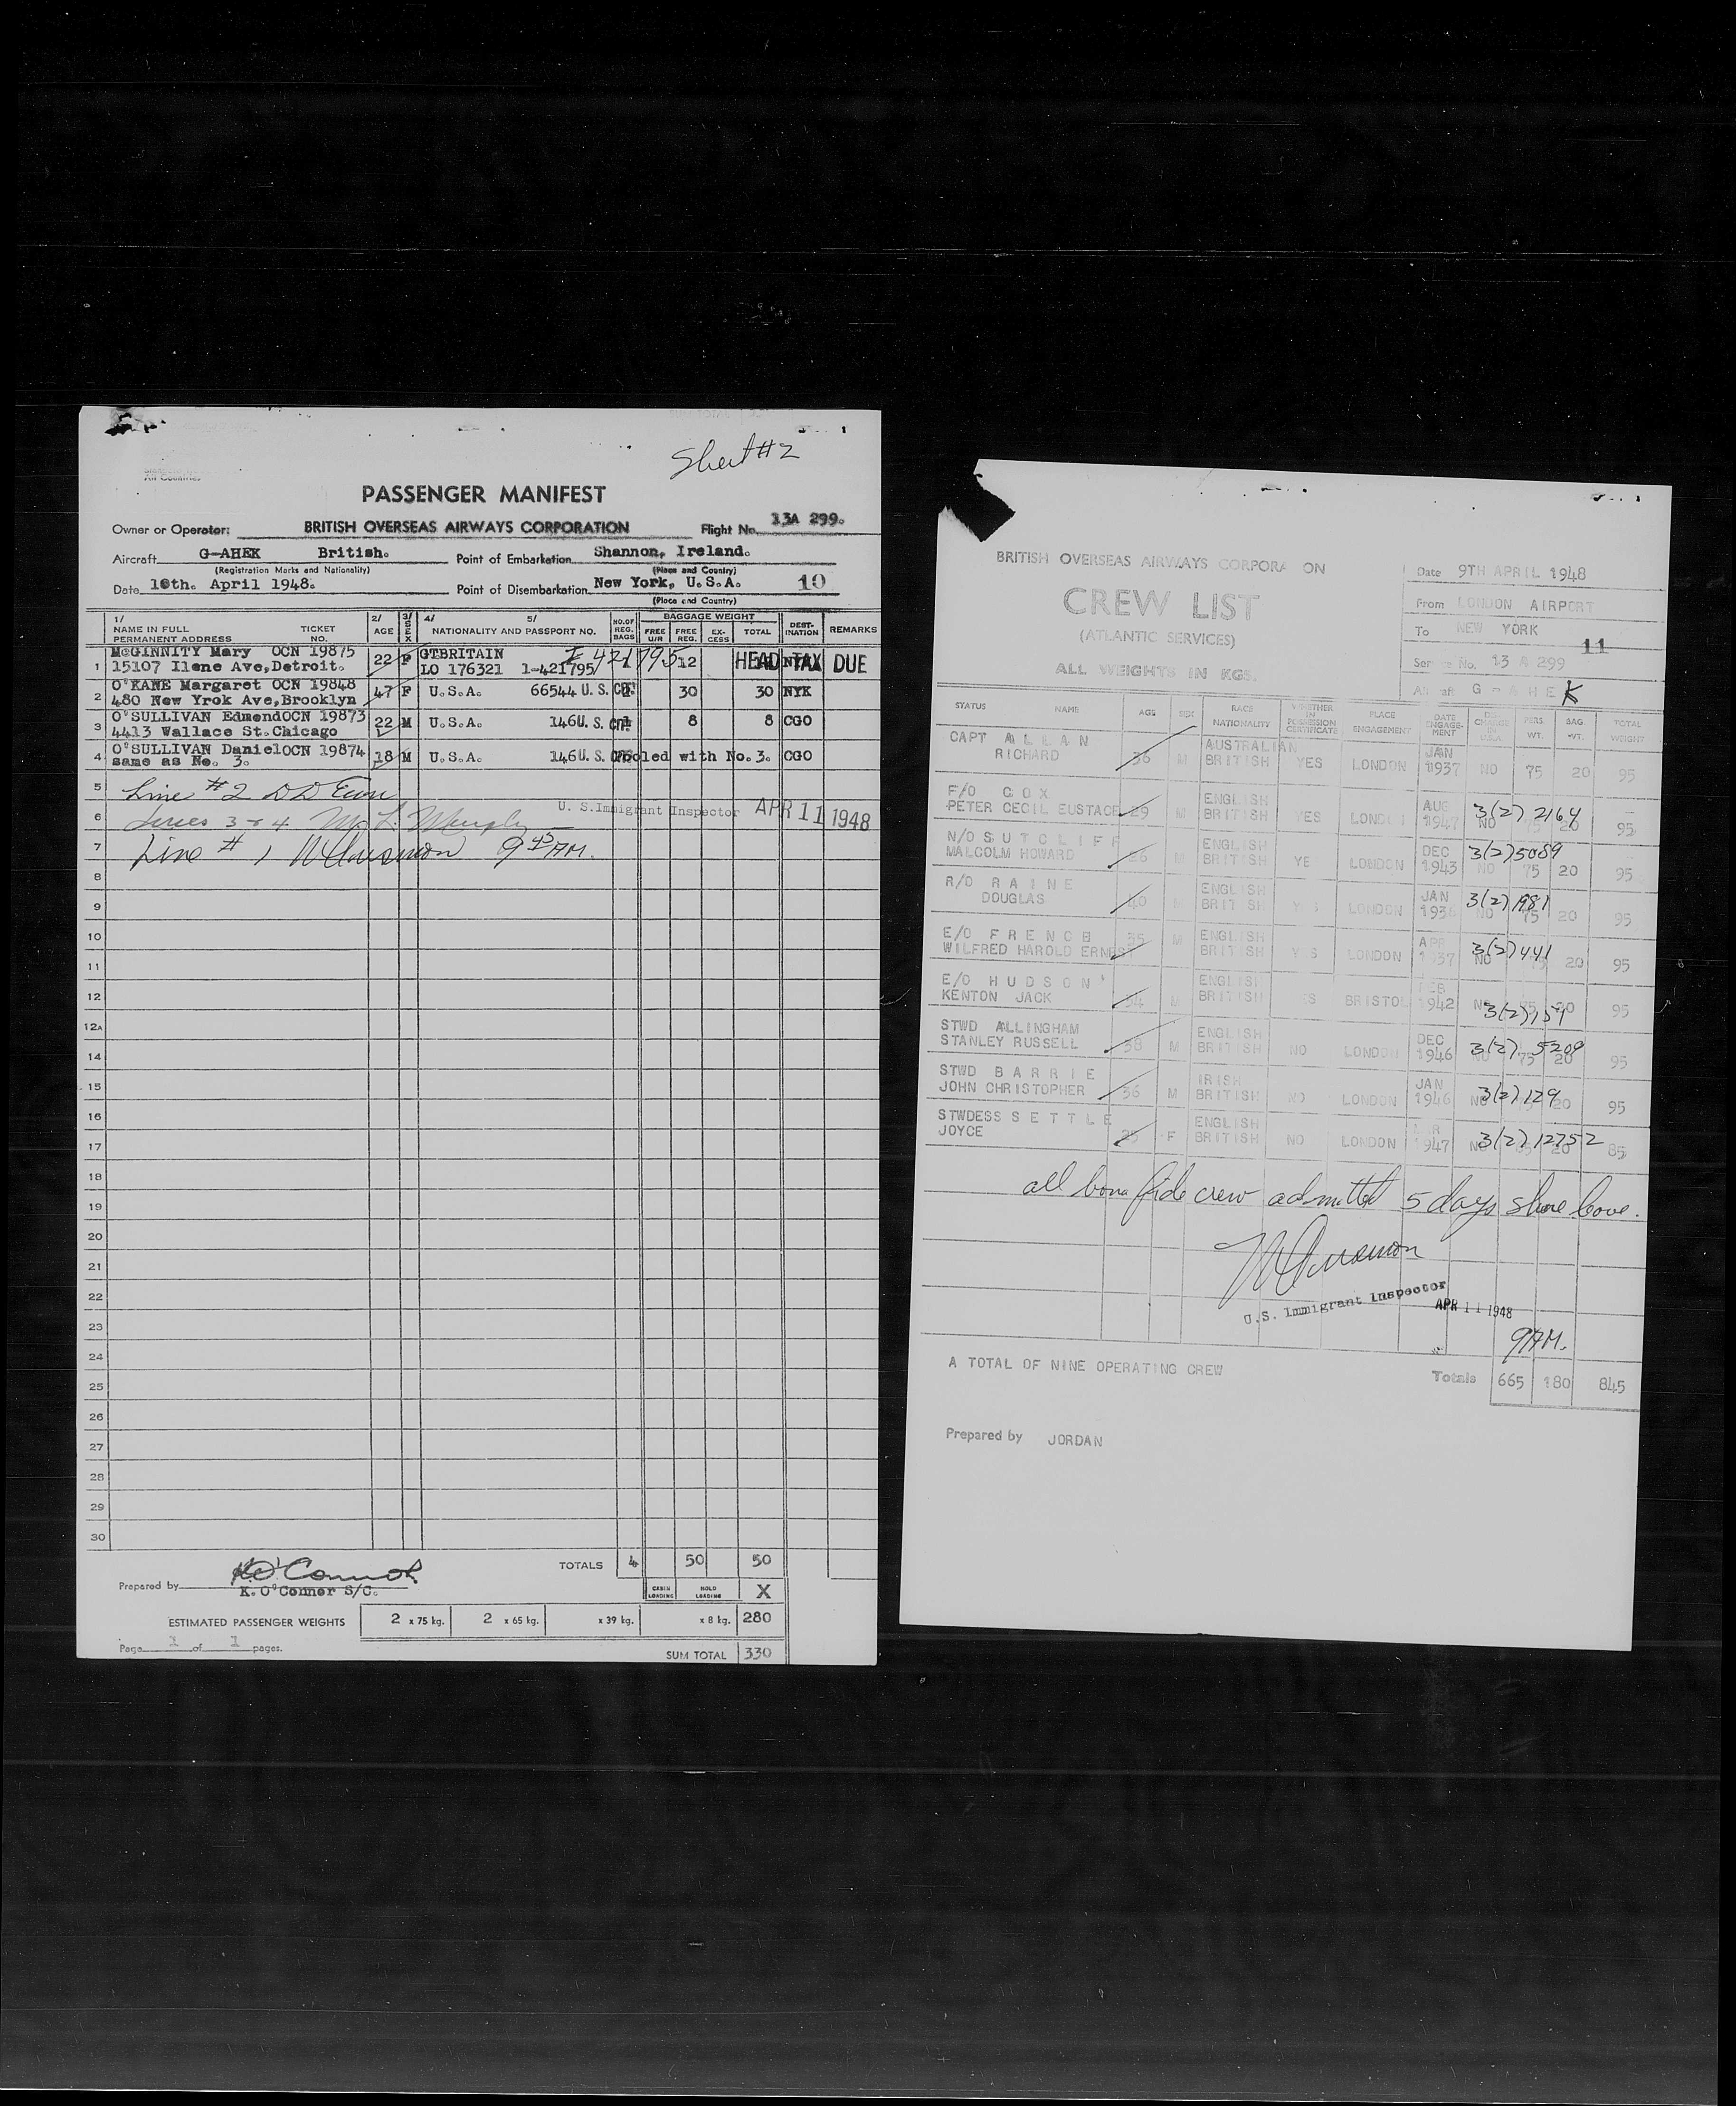 Sheet #2
All Countries
PASSENGER MANIFEST
Owner or Operator: BRITISH OVERSEAS AIRWAYS CORPORATION Flight No. 13A 299.
Aircraft G-AHEK British. Point of Embarkation Shannon, Ireland.
(Registration Marks and Nationality) (Place and Country)
Date 10th. April 1948. Point of Disembarkation New York, U.S.A. 10
(Place and Country)
1/ 2/ 3/ 4/ 5/ NO. OF REG. BAGS BAGGAGE WEIGHT DEST-INATION REMARKS
NAME IN FULL TICKET AGE SEX NATIONALITY AND PASSPORT NO. FREE U/R FREE REG. EX-CESS TOTAL
PERMANENT ADDRESS NO.
1 McGINNITY Mary OCN 19875 22 F GTBRITAIN I-421795 12 HEAD TAX DUE
15107 Ilene Ave,Detroit. LO 176321 1-421795/
2 O'KANE Margaret OCN 19848 47 F U.S.A. 66544 U. S. 30 30 NYK
480 New Yrok Ave,Brooklyn
3 O'SULLIVAN EdmendOCN 19873 22 M U.S.A. 146U. S. 8 8 CGO
4413 Wallace St.Chicago
4 O'SULLIVAN DanielOCN 19874 18 M U.S.A. 146U. S. Pooled with No.3. CGO
same as No. 3.
5 Line #2
6 Lines 3 & 4 Murphy U. S. Immigrant Inspector APR 11 1948
7 Line # 1 9 45 AM.
8
9
10
11
12
12A
14
15
16
17
18
19
20
21
22
23
24
25
26
27
28
29
30
TOTALS 4 50 50
K O'Connor
Prepared by K. O'Conner S/C. CABIN LOADING HOLD LOADING X
ESTIMATED PASSENGER WEIGHTS 2 x 75 kg. 2 x 65 kg. x 39 kg. x 8 kg. 280
Page 1 of 1 pages. SUM TOTAL 330
BRITISH OVERSEAS AIRWAYS CORPORA ON
CREW LIST
(ATLANTIC SERVICES)
ALL WEIGHTS IN KGS.
Date 9TH APRIL 1948
From LONDON AIRPORT
To NEW YORK
11
Service No. 13 A 299
Aircraft G - A H E K
STATUS NAME AGE SEX RACE NATIONALITY WHETHER IN POSSESSION CERTIFICATE PLACE ENGAGEMENT DATE ENGAGE-MENT PERS. WT. BAG. WT. TOTAL WEIGHT
CAPT ALLAN 36 M AUSTRALIAN YES LONDON JAN NO 75 20 95
RICHARD BRITISH 1937
F/O COX 29 M ENGLISH YES LONDON AUG 3(2) 2164 95
PETER CECIL EUSTACE BRITISH 1947 NO 75 20
N/O SUTCLIFF 26 M ENGLISH YES LONDON DEC 3(2)5089
MALCOLM HOWARD BRITISH 1943 NO 75 20 95
R/O RAINE 40 M ENGLISH YES LONDON JAN 3(2)1981
DOUGLAS BRITISH NO 75 20 95
E/O FRENCH 35 M ENGLISH YES LONDON APR 3(2)441
WILFRED HAROLD ERNEST BRITISH 1937 NO 75 20 95
E/O HUDSON 34 M ENGLISH YES BRISTOL FEB
KENTON JACK BRITISH 1942 NO 75 20 95
STWD ALLINGHAM 38 M ENGLISH NO LONDON DEC 3(2) 5209
STANLEY RUSSELL BRITISH 1946 NO 75 20 95
STWD BARRIE 36 M IRISH NO LONDON JAN 3(2)129
JOHN CHRISTOPHER BRITISH 1946 NO 75 20 95
STWDESS SETTLE 25 F ENGLISH NO LONDON MAR 3(2)12752
JOYCE BRITISH 1947 NO 65 20 85
all bona fide crew admitted 5 days shore leave.
U.S. Immigrant Inspector
APR 11 1948
9AM.
A TOTAL OF NINE OPERATING CREW Totals 665 180 845
Prepared by JORDAN